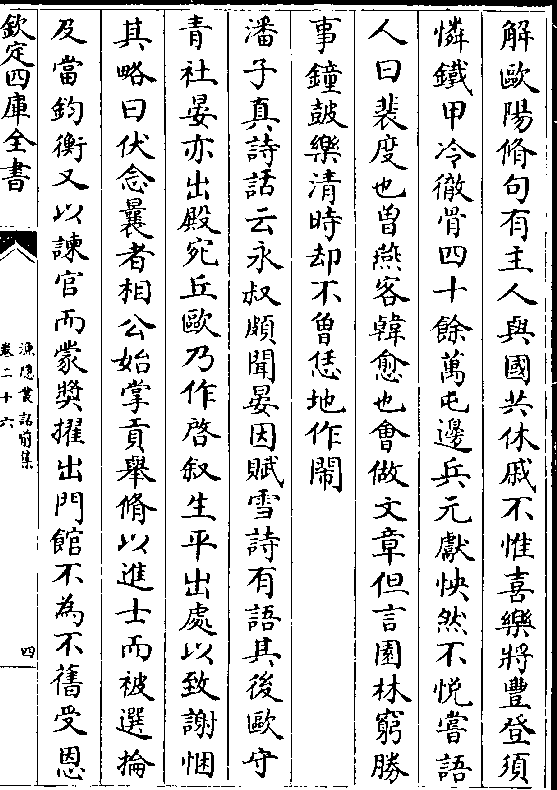 解歐陽脩句有主人與國共休戚不惟喜樂將豐登須
憐鐵甲冷徹骨四十餘萬屯邊兵元獻怏然不悦嘗語
人曰裴度也曽燕客韓愈也會做文章但言園林窮勝
事鐘皷樂清時却不曽恁地作鬧
潘子真詩話云永叔頗聞晏因賦雪詩有語其後歐守
青社晏亦出殿宛丘歐乃作啓叙生平出處以致謝悃
其略曰伏念曩者相公始掌貢舉脩以進士而被選掄
及當鈞衡又以諫官而蒙奬擢出門館不為不舊受恩
欽定四庫全書
漁隠叢話前集
卷二十六
四